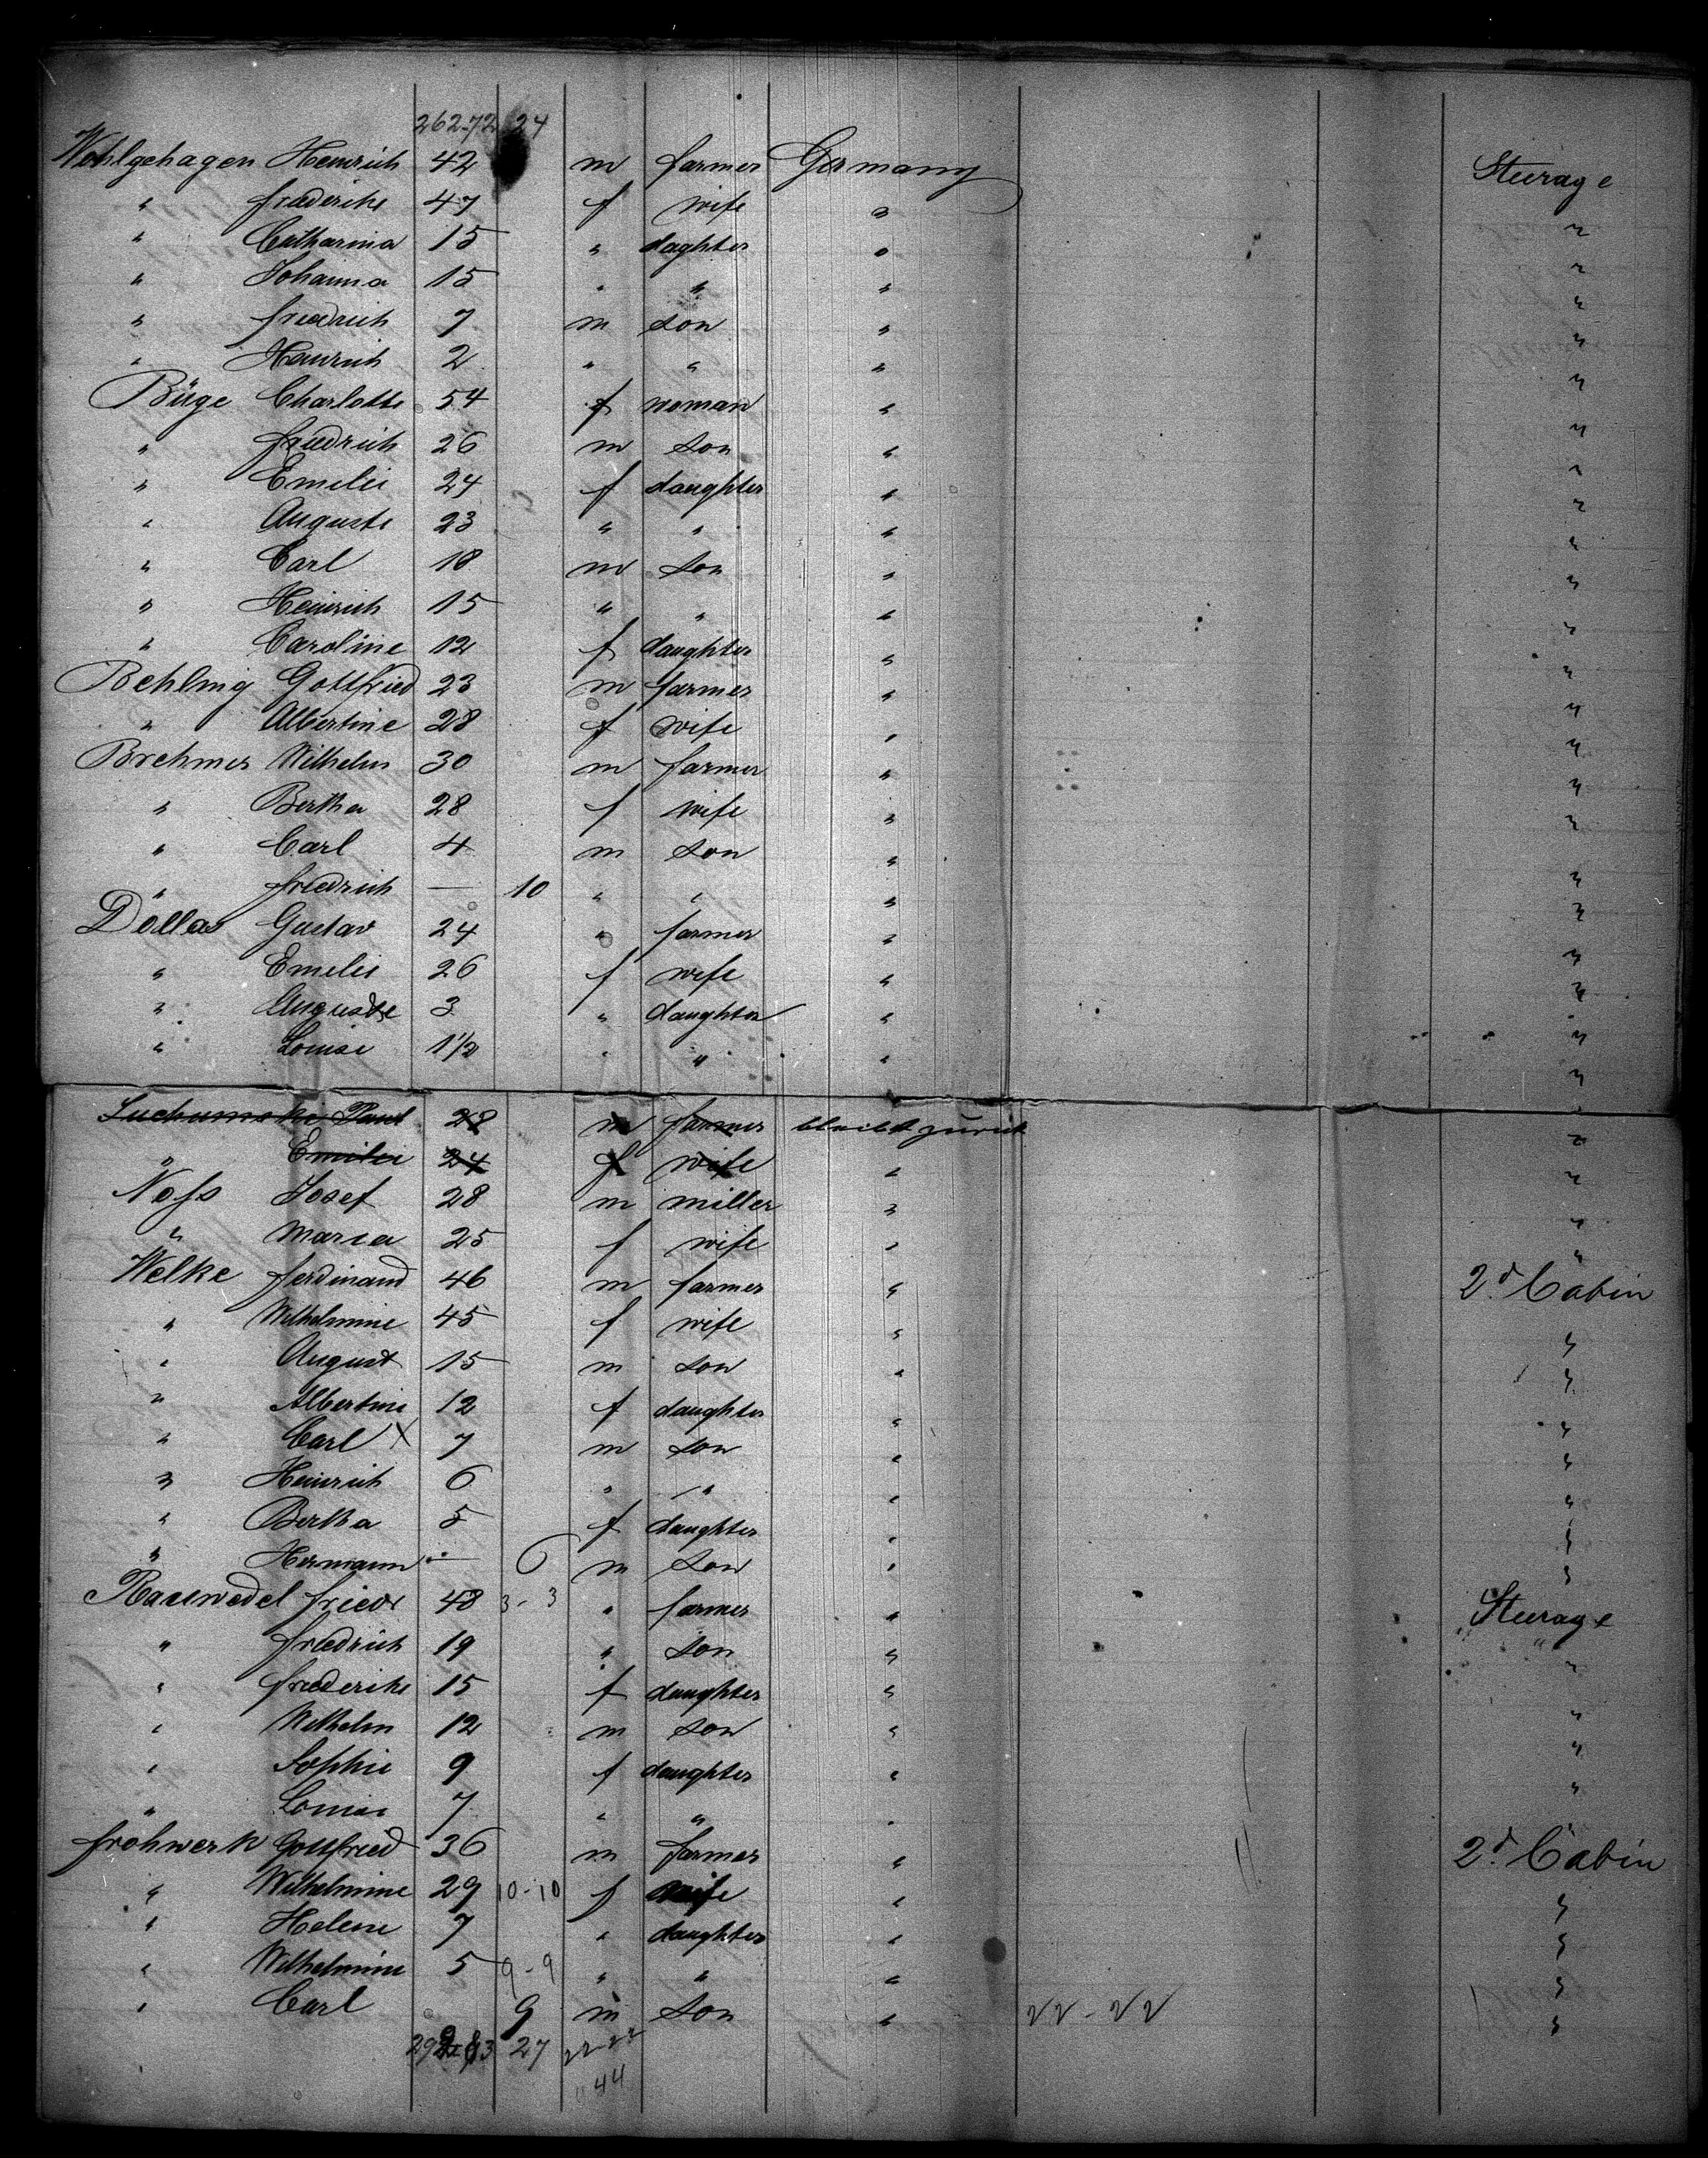 262-72 24
Wohlgehagen Heinrich 42 m farmer Germany Steerage
" friederike 47 f wife " "
" Catharina 15 " daghter " "
" Johanna 15 " " " "
" friedrich 7 m son " "
" Heinrich 2 " " " "
Büge Charlotte 54 f woman " "
" friedrich 26 m son " "
" Emilie 24 f daughter " "
" Auguste 23 " " " "
" Carl 18 m son " "
" Heinrich 15 " " " "
" Caroline 12 f daughter " "
Behling Gottfried 23 m farmer " "
" Albertine 28 f wife " "
Brehmer Wilhelm 30 m farmer " "
" Bertha 28 f wife " "
" Carl 4 m son " "
" friedrich — 10 " " " "
Dallas Gustav 24 " farmer " "
" Emilie 26 f wife " "
" Auguste 3 " daughter " "
" Louise 1 1/2 " " " "
Paul 28 m farmer bleibt zurück "
" Emilie 24 f wife " "
Noss Josef 28 m miller " "
" Maria 25 f wife " "
Welke ferdinand 46 m farmer " 2d Cabin
" Wilhelmine 45 f wife " "
" August 15 m son " "
" Albertine 12 f daughter " "
" Carl X 7 m son " "
" Heinrich 6 " " " "
" Bertha 5 f daughter " "
" Hermann — 6 m son " "
Rauwedel friedr 48 3-3 " farmer " Steerage
" friedrich 19 " son " "
" friederike 15 f daughter "
" Wilhelm 12 m son " "
" Sophie 9 f daughter " "
" Louise 7 " " " "
frohwerk Gottfried 36 m farmer " 2d Cabin
" Wilhelmine 29 10-10 f wife " "
" Helene 7 " daughter " "
" Wilhelmine 5 9-9 " " " "
" Carl 9 m son " 22-22 "
27 22-22
44